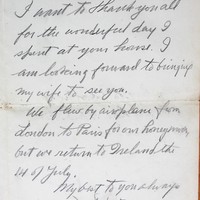 I want to thank you all
for the wonderful day I
spent at your home. I
am looking forward to bringing
my wife to see you.
We flew by airplane from
London to Paris for our honeymoon,
but we return to Ireland the
4 of July.
My best to you always